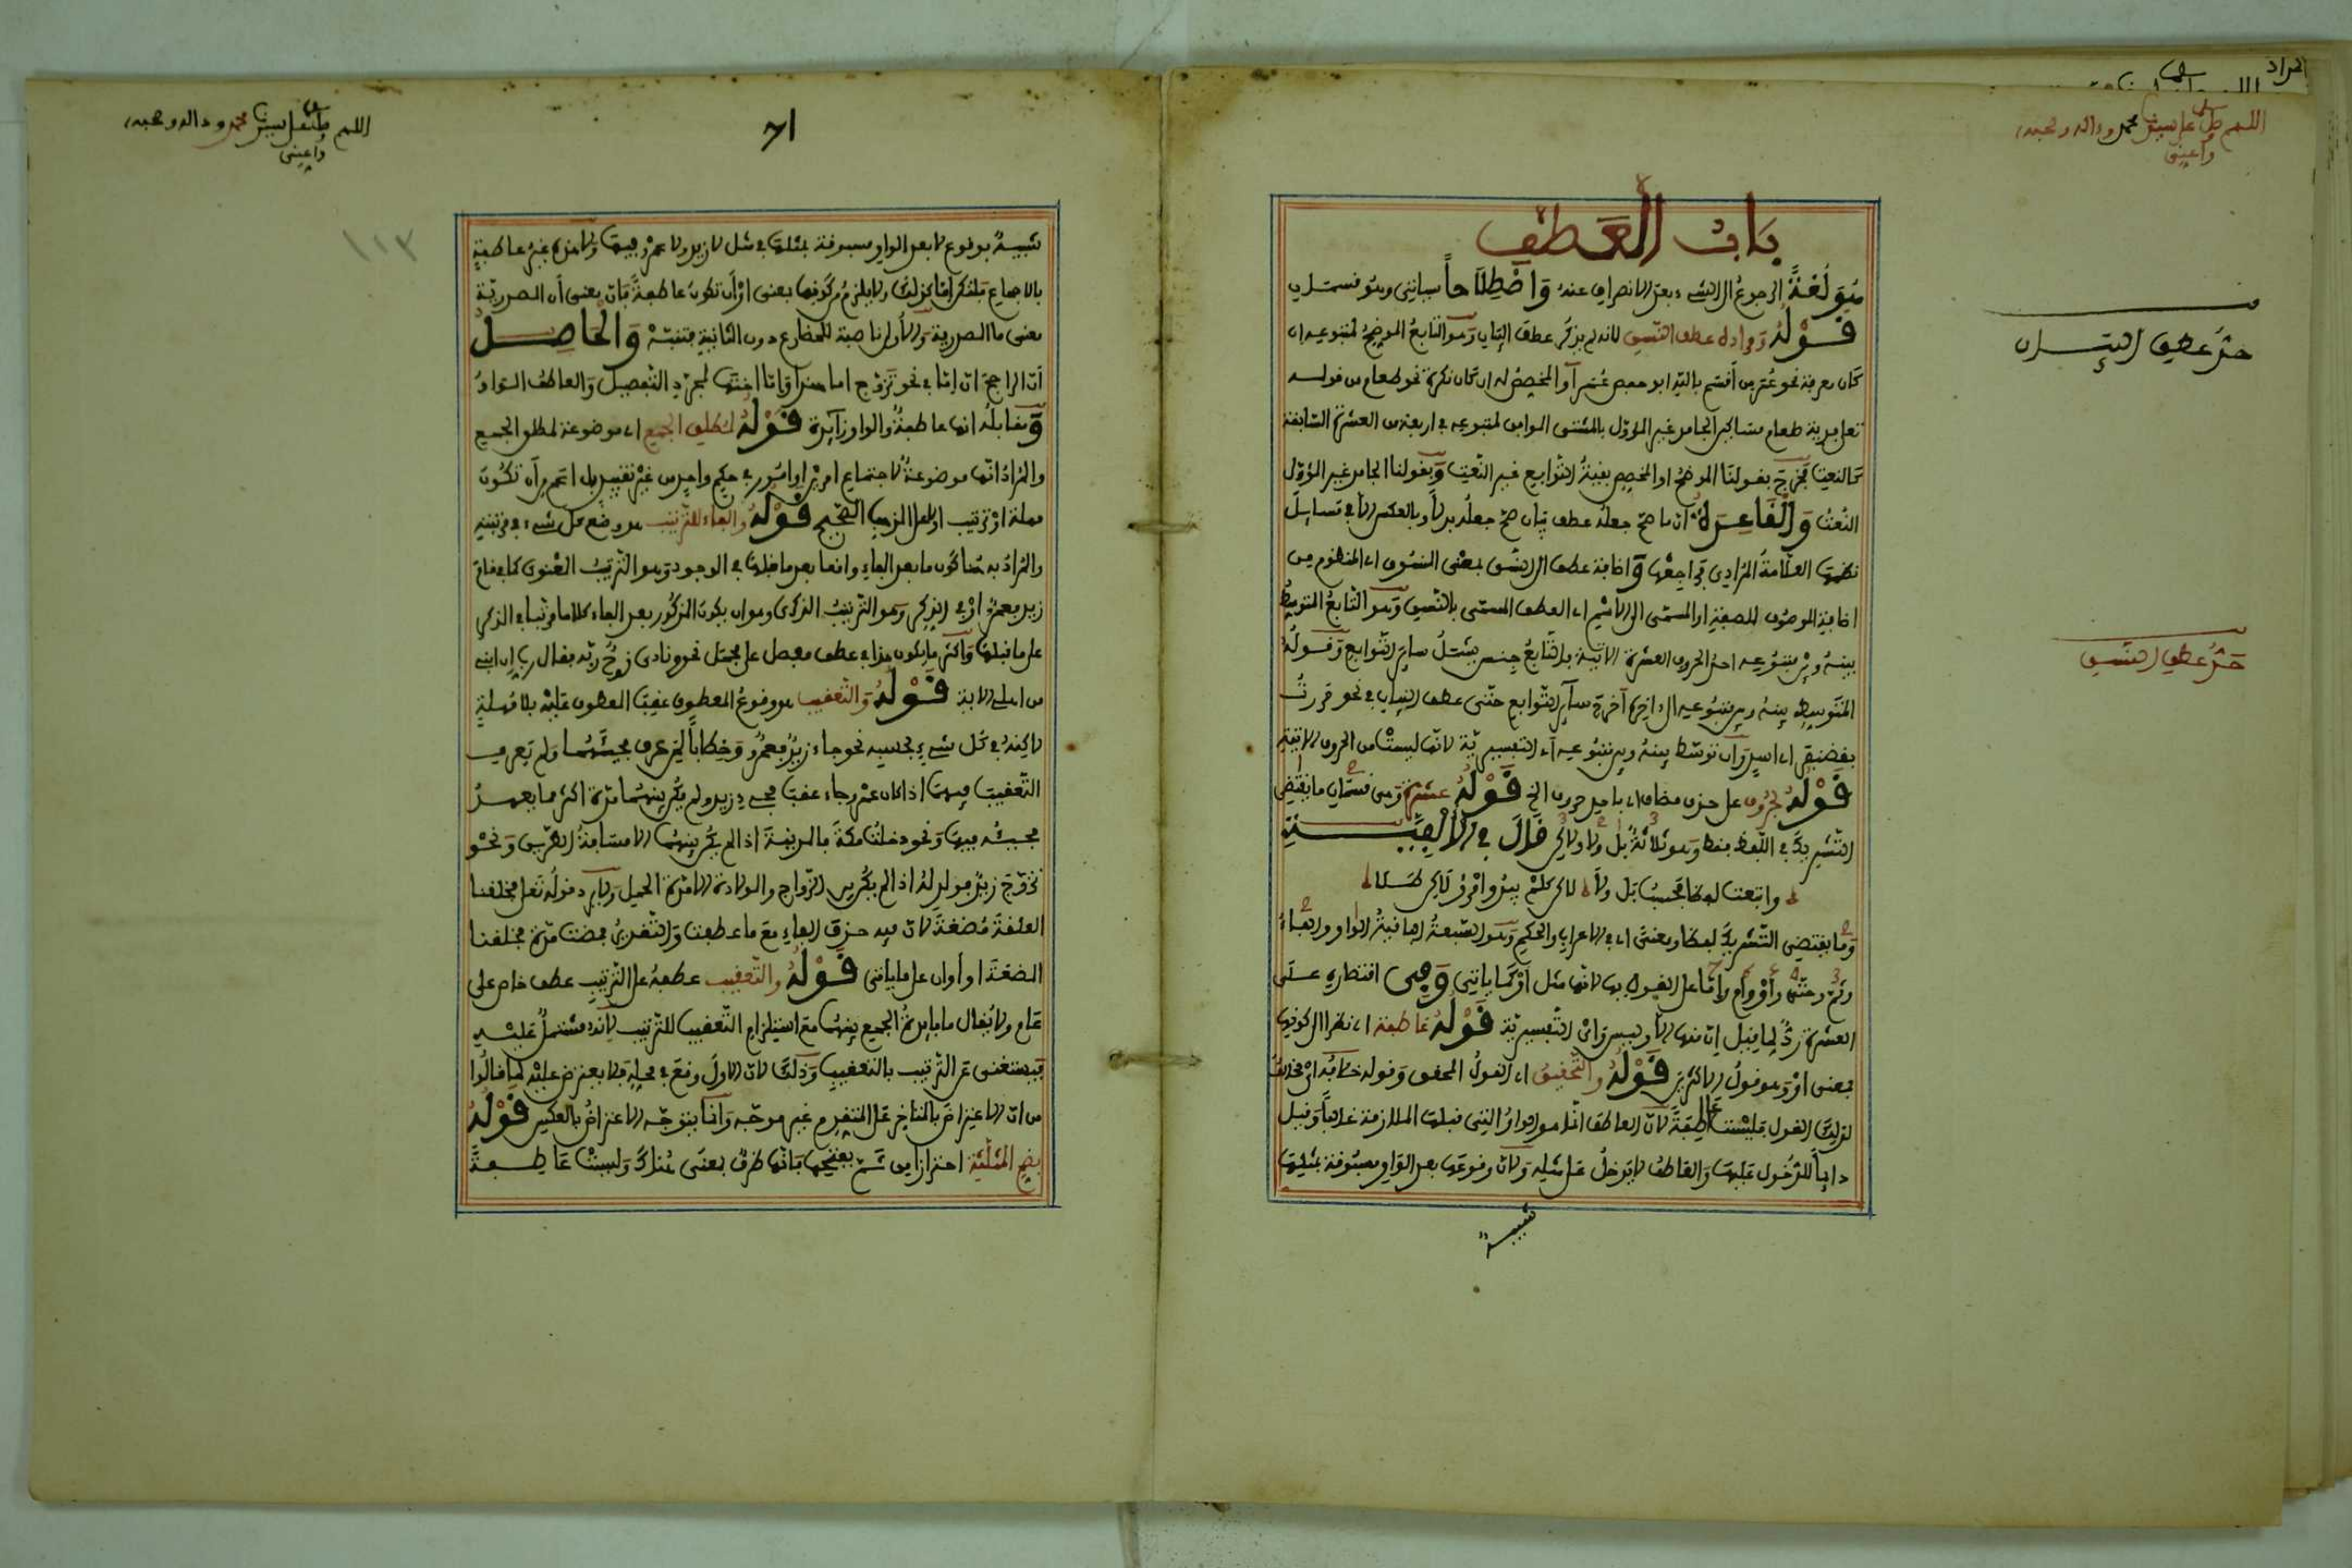 اللهم صل على سيدنا محمد وءاله وصحبه
وأعني
باب العطف
هو لغة الرجوع إلى الشيء بعد الانصراف عنه واصطلاحا سياتي وهو قسمان
قوله ومراده عطف النسق لأنه لم يذكر عطف البيان وهو التابع الموضح لمتبوعه ان
كان معرفة نحو عمر من أقسم بالله ابو حفص عمر أو المخصص له ان كان نكرة نحو طعام من قوله
تعلى فدية طعام مساكين الجامد غير المؤول بالمشتق الموافق لمتبوعه في اربعة من العشرة السابقة
كالنعت فخرج بقولنا الموضح او المخصص بقية التوابع غير النعت وبقولنا الجامد غير المؤول
النعت والقاعدة ان ما صح جعله عطف بيان صح جعله بدلا وبالعكس إلا في مسايل
نظمها العلامة المرادي فراجعها وإضافة عطف الى النسق بمعنى المنسوق اي المنظوم من
اضافة الموصوف للصفة او المسمى إلى الاسم اي العطف المسمى بالنسق وهو التابع المتوسط
بينه وبين متبوعه احد الحروف العشرة الاتية فالتابع جنس يشمل ساير التوابع وقوله
المتوسط بينه وبين متبوعه الى اخره اخرج ساير التوابع حتى عطف البيان في نحو مررت
بغضنفر اي اسد وان توسط بينه وبين متبوعه أي التفسيرية لانها ليست من الحروف الاتية
قوله لحروف على حذف مضاف اي باب حروف الخ قوله عشرة وهي قسمان ما يقتضي
التشريك في اللفظ فقط وهو ثلاثة بل ولا ولكن قال في الألفية
واتبعت لفظا فحسب بل ولا لكن كلم يبد امرؤ لكن طلا
وما يقتضي التشريك لفظا ومعنى اي في الاعراب والحكم وهو السبعة الباقية الواو والفاء
وثم وحتى وأو وأم وإما على القول بها لانها مثل أو كما ياتي وهي اقتصاره على
العشرة رد لما قيل ان منها إلا وليس وأي التفسيرية قوله عاطفة اي نظرا الى كونها
بمعنى او وهو قول الاكثرين قوله والتحقيق اي القول المحقق وقوله خلافه اي مخالف
لذلك القول فليست عاطفة لان العاطف انما هو الواو التي قبلها الملازمة غالبا وقيل
دايما للدخول عليها والعاطف لا يدخل على مثله ولان وقوعها بعد الواو مسبوقة بمثلها
شبيه
حد عطف البيان
حد عطف النسق
اللهم صل على سيدنا محمد وءاله وصحبه
وأعني
71
١١٣
شبيه بوقوع لا بعد الواو مسبوقة بمثلها في مثل لا زيد ولا عمرو فيها ولا هذه غير عاطفة
بالاجماع فلتكن إما كذلك ولا يلزم من كونها بمعنى او أن تكون عاطفة فان بمعنى أن المصدرية
بمعنى ما المصدرية والأولى ناصبة للمضارع دون الثانية فتنبه والحاصل
أن الراجح ان إما في نحو تزوج اما هندا وإما اختها لمجرد التفصيل والعاطف الواو
ومقابله انها عاطفة والواو زايدة قوله لمطلق الجمع اي موضوعة لمطلق الجمع
والمراد انها موضوعة لاجتماع امرين او امور في حكم واحد من غير تقييد بل اعم من أن تكون
مهلة او ترتيب او لا على المذهب الصحيح قوله والفاء للترتيب هو وضع كل شيء في مرتبته
والمراد به هنا كون ما بعد الفاء واقعا بعد ما قبلها في الوجود وهو الترتيب المعنوي كما في قام
زيد فعمرو او في الذكر وهو الترتيب الذكري وهو ان يكون المذكور بعد الفاء كلاما مرتبا في الذكر
على ما قبلها واكثر ما يكون هذا في عطف مفصل على مجمل نحو ونادى نوح ربه فقال رب إن ابني
من اهلي الاية قوله والتعقيب هو وقوع المعطوف عقب المعطوف عليه بلا مهلة
لاكنه في كل شيء بحسبه نحو جاء زيد فعمرو وخطابا لمن عرف مجيئهما ولم يعرف
التعقيب فيها اذا كان عمرو جاء عقب مجيء زيد ولم يكن بينهما مدة اكثر مما يعهد
مجيئه فيها ونحو دخلت مكة فالمدينة اذا لم يكن بينهما الا مسافة الطريق ونحو
تزوج زيد فولد له اذا لم يكن بين الزواج والولادة الا مدة الحمل ولا يرد قوله تعلى فخلقنا
العلقة مضغة لان فيه حذف الفاء مع ما عطفت والتقدير فمضت مدة فخلقنا
المضغة او أو ان على ما ياتي قوله والتعقيب عطفه على الترتيب عطف خاص على
عام ولا يقال ما فايدة الجمع بينهما مع استلزام التعقيب للترتيب لأنه مشتمل عليه
فيستغنى عن الترتيب بالتعقيب وذلك لان الاول وقع في محله فلا يعترض عليه لما قالوا
من ان الاعتراض بالمتاخر على المتقدم غير موجه وانما يتوجه الاعتراض بالعكس قوله
بضم المثلثة احترازا من ثم بفتحها فانها ظرف بمعنى هناك وليست عاطفة